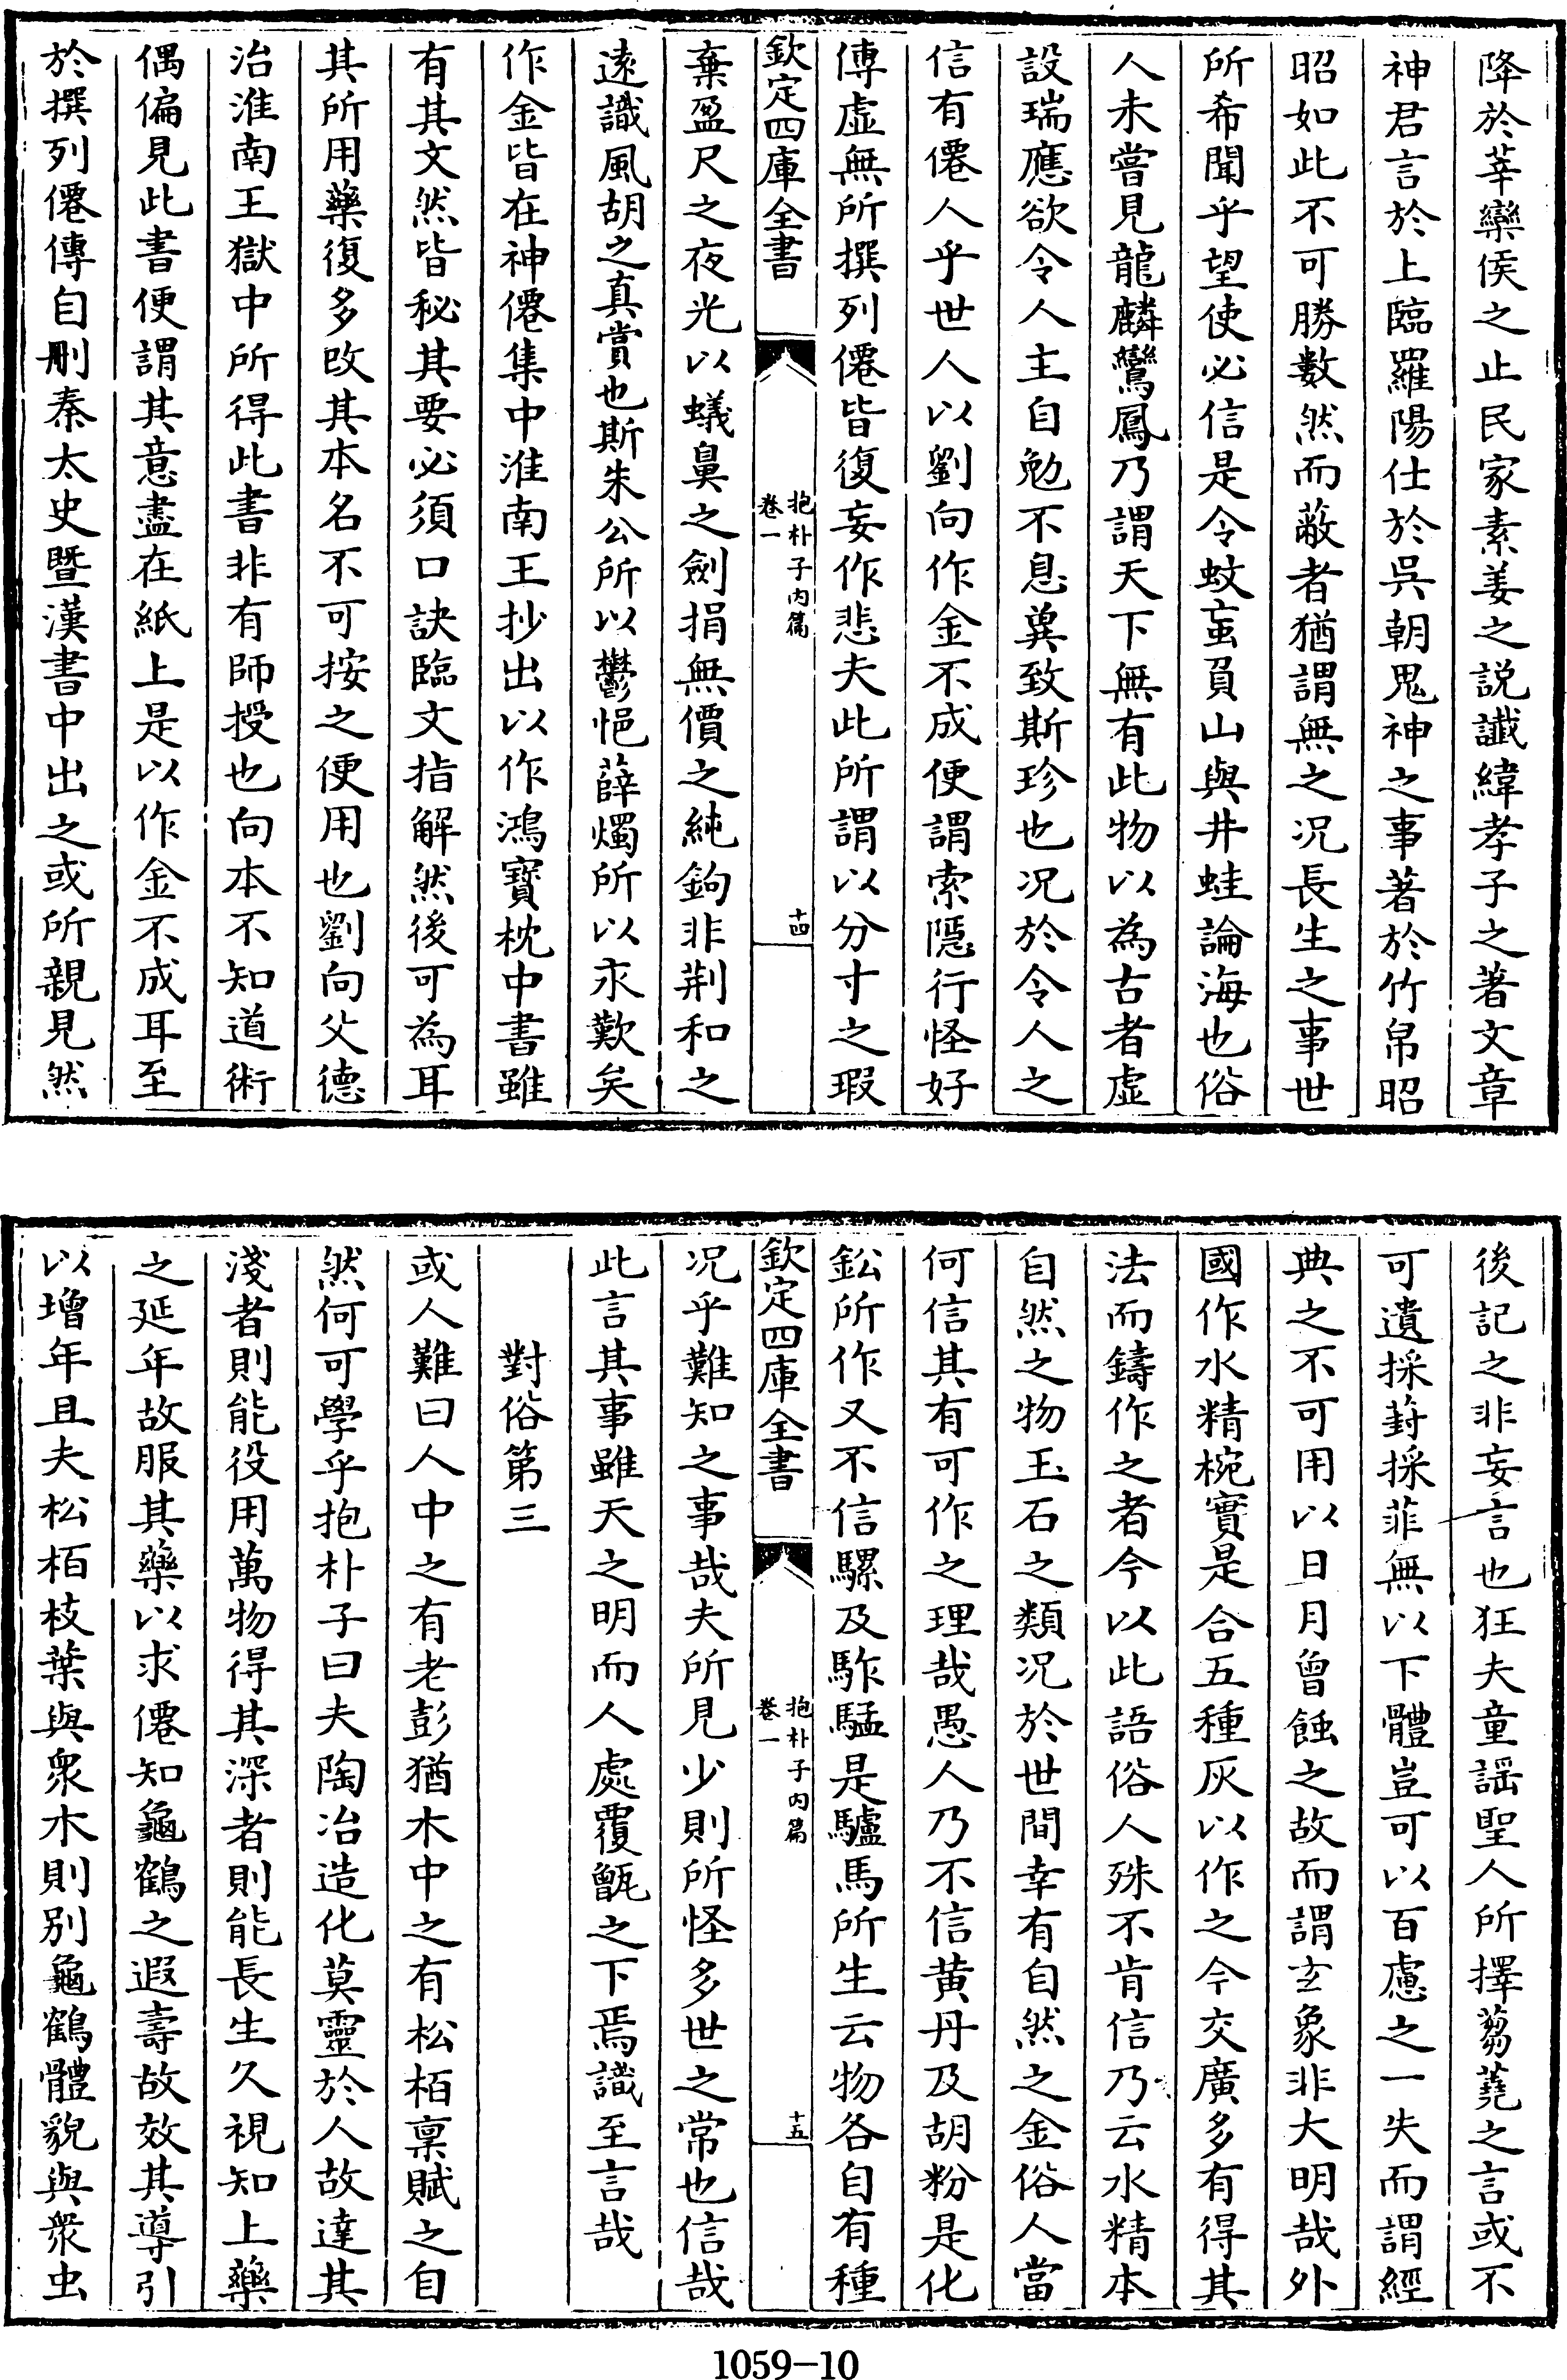 降於莘欒侯之止民家素姜之説讖緯孝子之著文章
神君言於上臨羅陽仕於吳朝鬼神之事著於竹帛昭
昭如此不可勝數然而蔽者猶謂無之况長生之事世
所希聞乎望使必信是令蚊䖟負山與井蛙論海也俗
人未嘗見龍麟鸞鳳乃謂天下無有此物以為古者虚
設瑞應欲令人主自勉不息冀致斯珍也况於令人之
信有僊人乎世人以劉向作金不成便謂索隠行怪好
傳虛無所撰列僊皆復妄作悲夫此所謂以分寸之瑕
欽定四庫全書
抱朴子内篇
卷一
十四
棄盈尺之夜光以蟻鼻之劍捐無價之純鈎非荆和之
遠識風胡之真賞也斯朱公所以鬱悒薛燭所以永歎矣
作金皆在神僊集中淮南王抄出以作鴻寶枕中書雖
有其文然皆秘其要必須口訣臨文指解然後可為耳
其所用藥復多改其本名不可按之便用也劉向父德
治淮南王獄中所得此書非有師授也向本不知道術
偶偏見此書便謂其意盡在紙上是以作金不成耳至
於撰列僊傳自刪秦太史暨漢書中出之或所親見然
後記之非妄言也狂夫童謡聖人所擇蒭蕘之言或不
可遺採葑採菲無以下體豈可以百慮之一失而謂經
典之不可用以日月曾蝕之故而謂玄象非大明哉外
國作水精椀實是合五種灰以作之今交廣多有得其
法而鑄作之者今以此語俗人殊不肯信乃云水精本
自然之物玉石之類况於世間幸有自然之金俗人當
何信其有可作之理哉愚人乃不信黄丹及胡粉是化
鈆所作又不信騾及駏驉是驢馬所生云物各自有種
欽定四庫全書
抱朴子内篇
卷一
十五
况乎難知之事哉夫所見少則所怪多世之常也信哉
此言其事雖天之明而人處覆甑之下焉識至言哉
對俗第三
或人難曰人中之有老彭猶木中之有松栢稟賦之自
然何可學乎抱朴子曰夫陶冶造化莫靈於人故達其
淺者則能役用萬物得其深者則能長生久視知上藥
之延年故服其藥以求僊知龜鶴之遐壽故效其導引
以增年且夫松栢枝葉與衆木則别龜鶴體貌與衆虫
1059-10